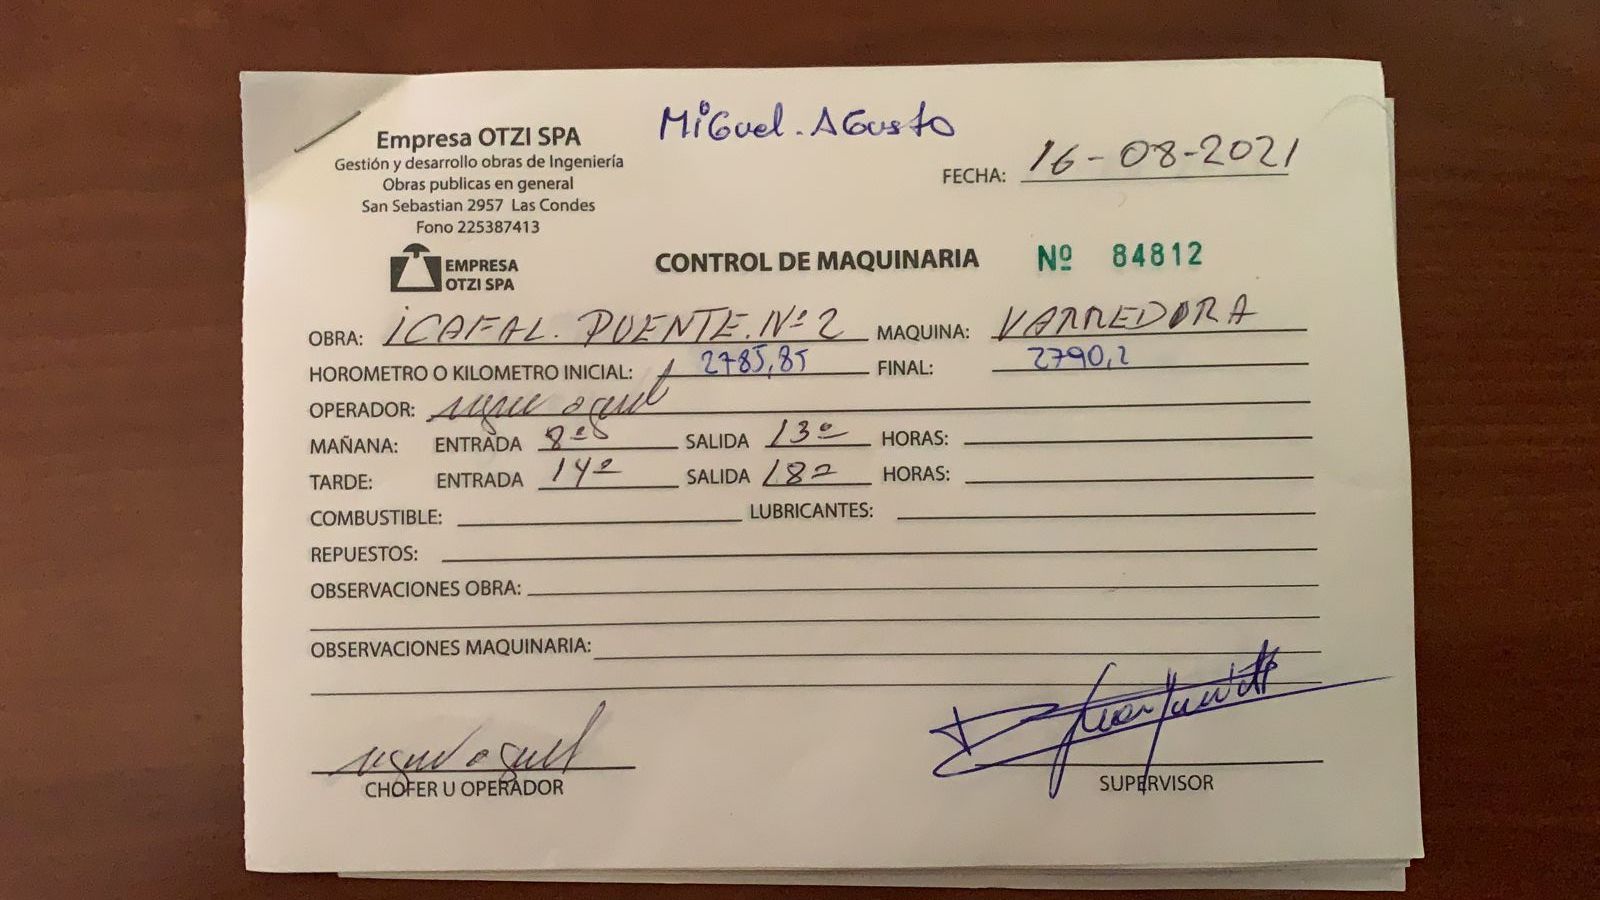 Miguel. Agusto
Empresa OTZI SPA
Gestión y desarrollo obras de Ingeniería
Obras publicas en general
San Sebastian 2957 Las Condes
Fono 225387413
FECHA: 16-08-2021
EMPRESA
OTZI SPA
CONTROL DE MAQUINARIA Nº 84812
OBRA: iCAFAL. PUENTE. Nº 2 MAQUINA: VARREDORA
HOROMETRO O KILOMETRO INICIAL: 2785,85 FINAL: 2790,2
OPERADOR:
MAÑANA: ENTRADA 8º SALIDA 13º HORAS:
TARDE: ENTRADA 14º SALIDA 18º HORAS:
COMBUSTIBLE: LUBRICANTES:
REPUESTOS:
OBSERVACIONES OBRA:
OBSERVACIONES MAQUINARIA:
CHOFER U OPERADOR
SUPERVISOR